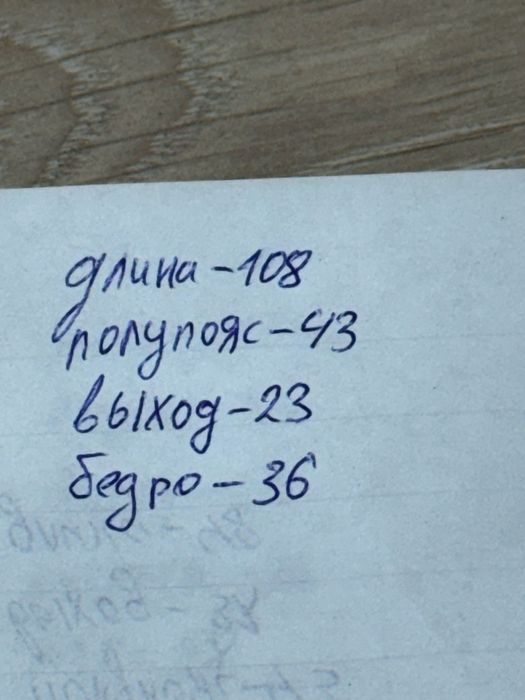 длина - 108
полупояс - 43
выход - 23
бедро - 36